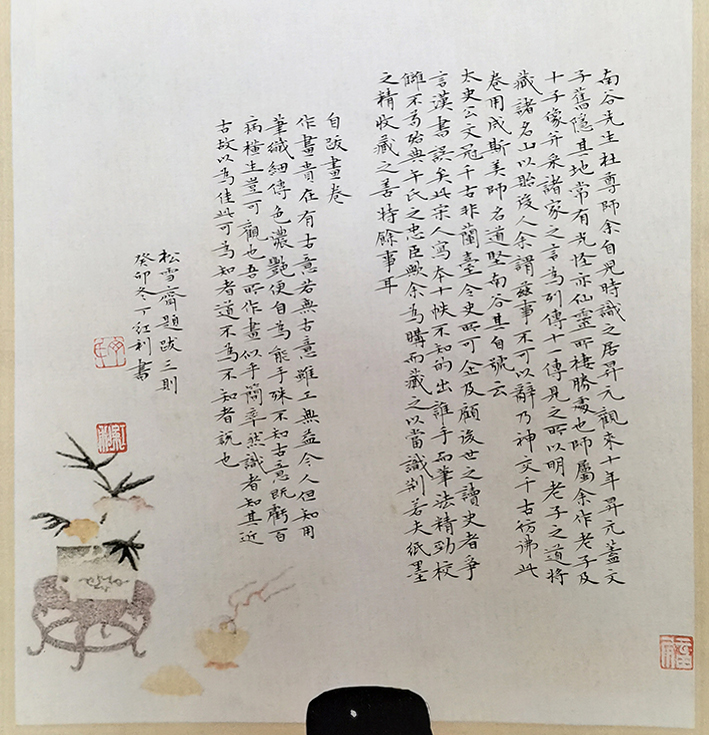 南谷先生杜尊師余自兒時識之居昇元觀來十年昇元蓋文
子舊隱其地常有光怪亦仙靈所棲勝處也師屬余作老子及
十子像并采諸家之言為列傳十一傳見之所以明老子之道將
藏諸名山以貽後人余謂茲事不可以辭乃神交千古彷彿此
卷用成斯美師名道堅南谷其自號云
太史公文冠千古非蘭臺令史所可企及顧後世之讀史者爭
言漢書誤矣此宋人寫本十帙不知的出誰手而筆法精勁校
雠不苟殆典午氏之忠臣歟余為購而藏之以當識荆若夫紙墨
之精收藏之善特餘事耳
自跋畫卷
作畫貴在有古意若無古意雖工無益今人但知用
筆纖細傅色濃艷便自為能手殊不知古意既虧百
病橫生豈可觀也吾所作畫似乎簡率然識者知其近
古故以為佳此可為知者道不為不知者說也
松雪齋題跋三則
癸卯冬丁红利書